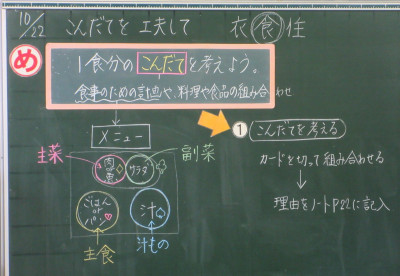 10/22 こんだてを工夫して 衣食住
め
1食分のこんだてを考えよう。
食事のための計画や、料理や食品の組み合わせ
メニュー
主菜
副菜
肉
魚
サラダ
ごはん
パン
汁
主食
汁もの
① こんだてを考える
カードを切って組み合わせる
理由をノートP22に記入